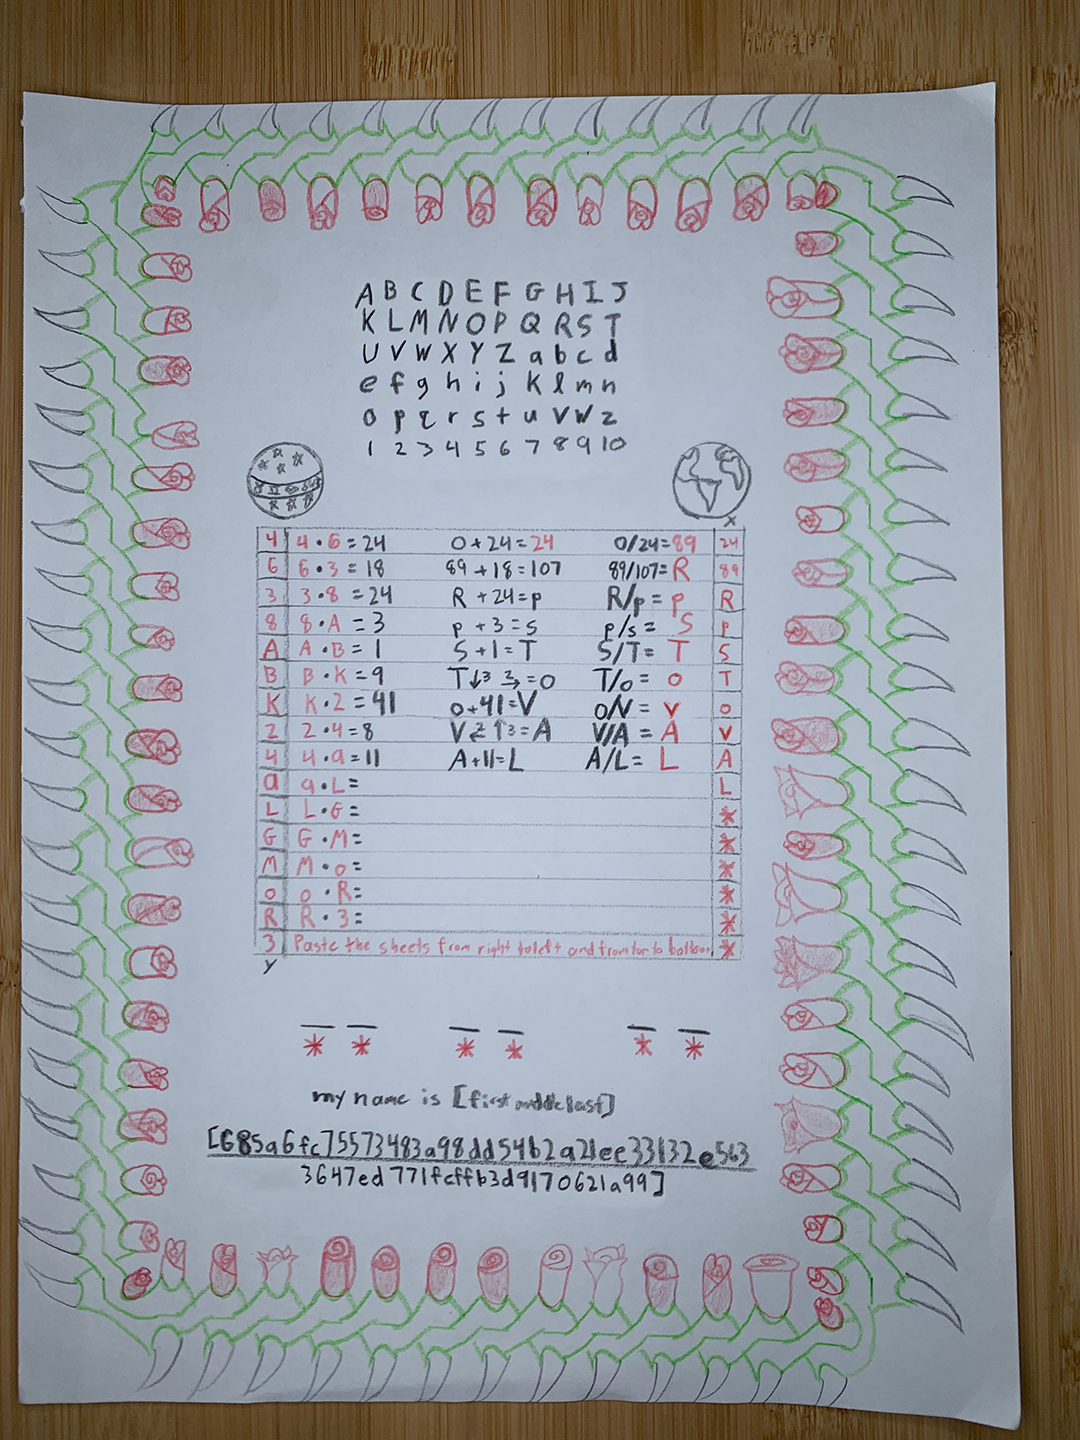 A B C D E F G H I J
K L M N O P Q R S T
U V W X Y Z a b c d
e f g h i j k l m n
o p q r s t u v w z
1 2 3 4 5 6 7 8 9 10
x
4 4 • 6 = 24 0 + 24 = 24 0/24 = 89 24
6 6 • 3 = 18 89 + 18 = 107 89/107 = R 89
3 3 • 8 = 24 R + 24 = p R/p = p R
8 8 • A = 3 p + 3 = s p/s = S p
A A • B = 1 S + 1 = T S/T = T S
B B • K = 9 T ↓3 → = o T/o = o T
K K • 2 = 41 o + 41 = V o/V = v o
2 2 • 4 = 8 V ↑3 = A V/A = A v
4 4 • a = 11 A + 11 = L A/L = L A
a a • L = L
L L • G = *
G G • M = *
M M • o = *
o o • R = *
R R • 3 = *
3 Paste the sheets from right to left and from top to bottom *
y
* * * * * *
my name is [first middle last]
[685a6fc75573483a98dd54b2a21ee33132e563
3647ed771fcffb3d9170621a99]